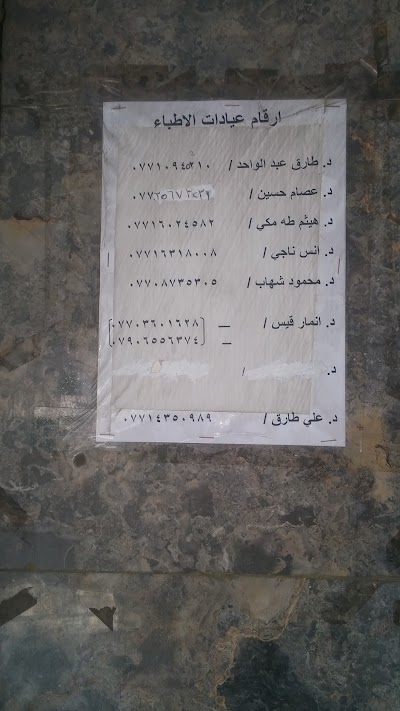 ارقام عيادات الاطباء
د. طارق عبد الواحد / ٠٧٧١٠٩٤٥٢١٠
د. عصام حسين /
د. هيثم طه مكي / ٠٧٧١٦٠٢٤٥٨٢
د. انس ناجي / ٠٧٧١٦٣١٨٠٠٨
د. محمود شهاب / ٠٧٧٠٨٧٣٥٣٠٥
د. انمار قيس / — ٠٧٧٠٣٦٠١٦٢٨
— ٠٧٩٠٦٥٥٦٣٧٤
د. /
د. علي طارق / ٠٧٧١٤٣٥٠٩٨٩